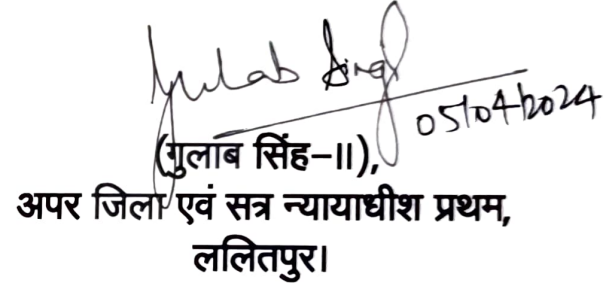 Gulab Singh
05/04/2024
(गुलाब सिंह–II),
अपर जिला एवं सत्र न्यायाधीश प्रथम,
ललितपुर।